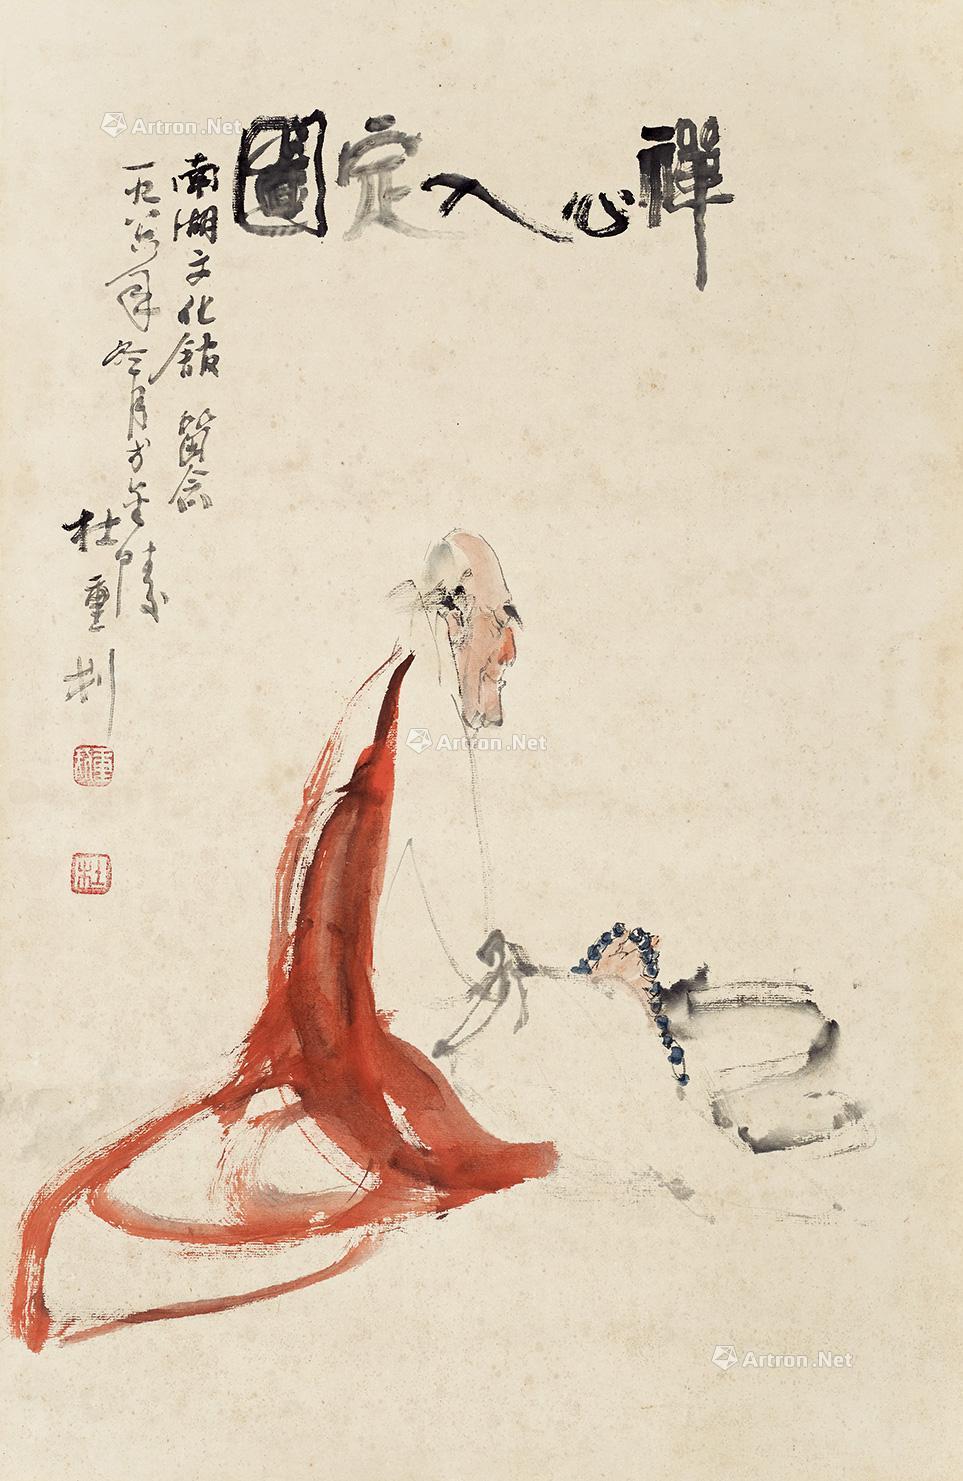 Artron.Net
禪心入定圖
南湖文化館 留念
一九八六年冬月於金陵
杜重划
Artron.Net
Artron.Net